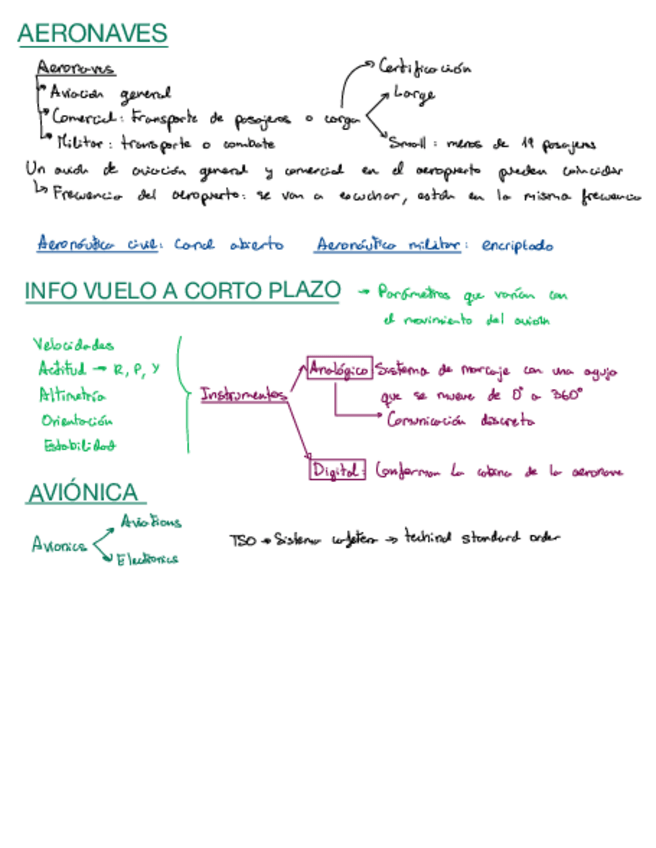 AERONAVES
Aeronaves
Aviación general
Comercial: Transporte de pasajeros o carga
Certificación
Large
Small: menos de 19 pasajeros
Militar: transporte o combate
Un avión de aviación general y comercial en el aeropuerto pueden coincidir
↳ Frecuencia del aeropuerto: se van a escuchar, están en la misma frecuencia
Aeronáutica civil: Canal abierto Aeronáutica militar: encriptado
INFO VUELO A CORTO PLAZO → Parámetros que varían con
el movimiento del avión
Velocidades
Actitud → R, P, Y
Altimetría
Orientación
Estabilidad
Instrumentos
Analógico Sistema de marcaje con una aguja
que se mueve de 0° a 360°
Comunicación discreta
Digital: Conforman la cabina de la aeronave
AVIÓNICA
Avionics
Aviations
Electronics
TSO → Sistema → standard order